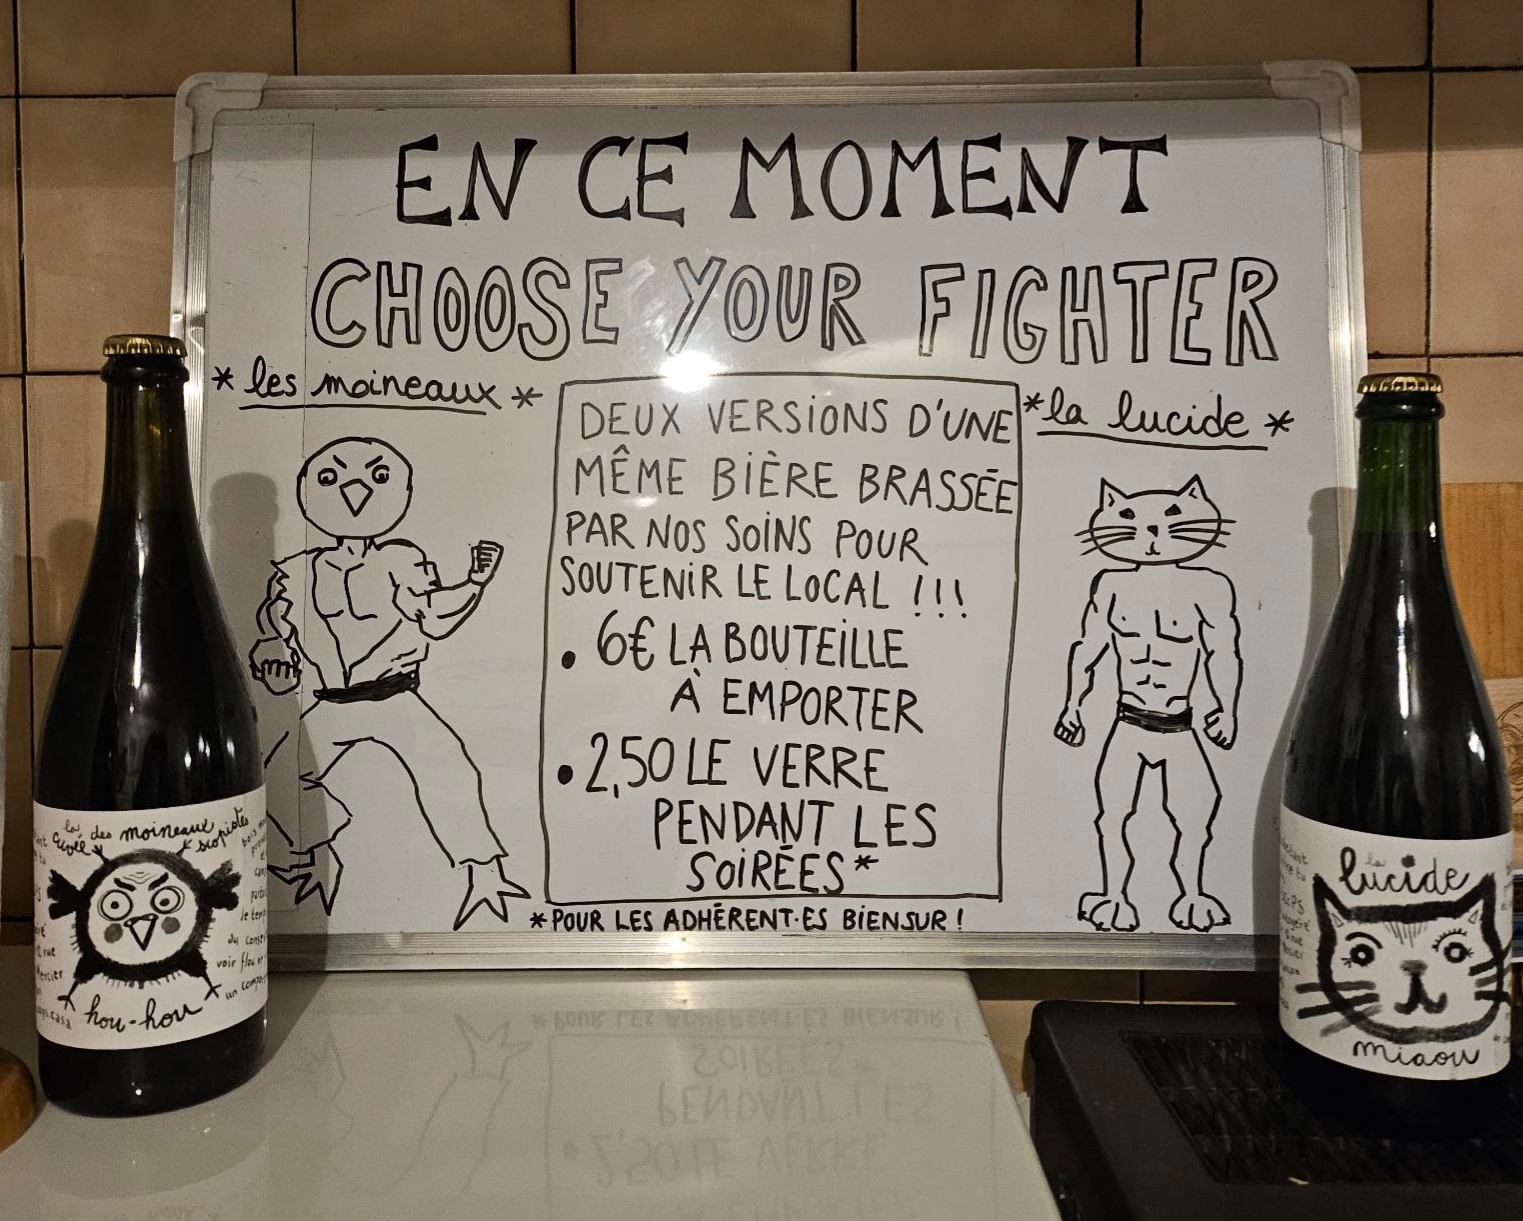 EN CE MOMENT
CHOOSE YOUR FIGHTER
* les moineaux *
*la lucide *
DEUX VERSIONS D'UNE
MÊME BIÈRE BRASSÉE
PAR NOS SOINS POUR
SOUTENIR LE LOCAL !!!
• 6€ LA BOUTEILLE
À EMPORTER
• 2,50 LE VERRE
PENDANT LES
SOIRÉES*
*POUR LES ADHÉRENT·ES BIENSUR !
la des moineaux
cuvée scopistes
hou-hou
rue
Mercier
le temps
du
voir flou
un
la
lucide
miaou
rue